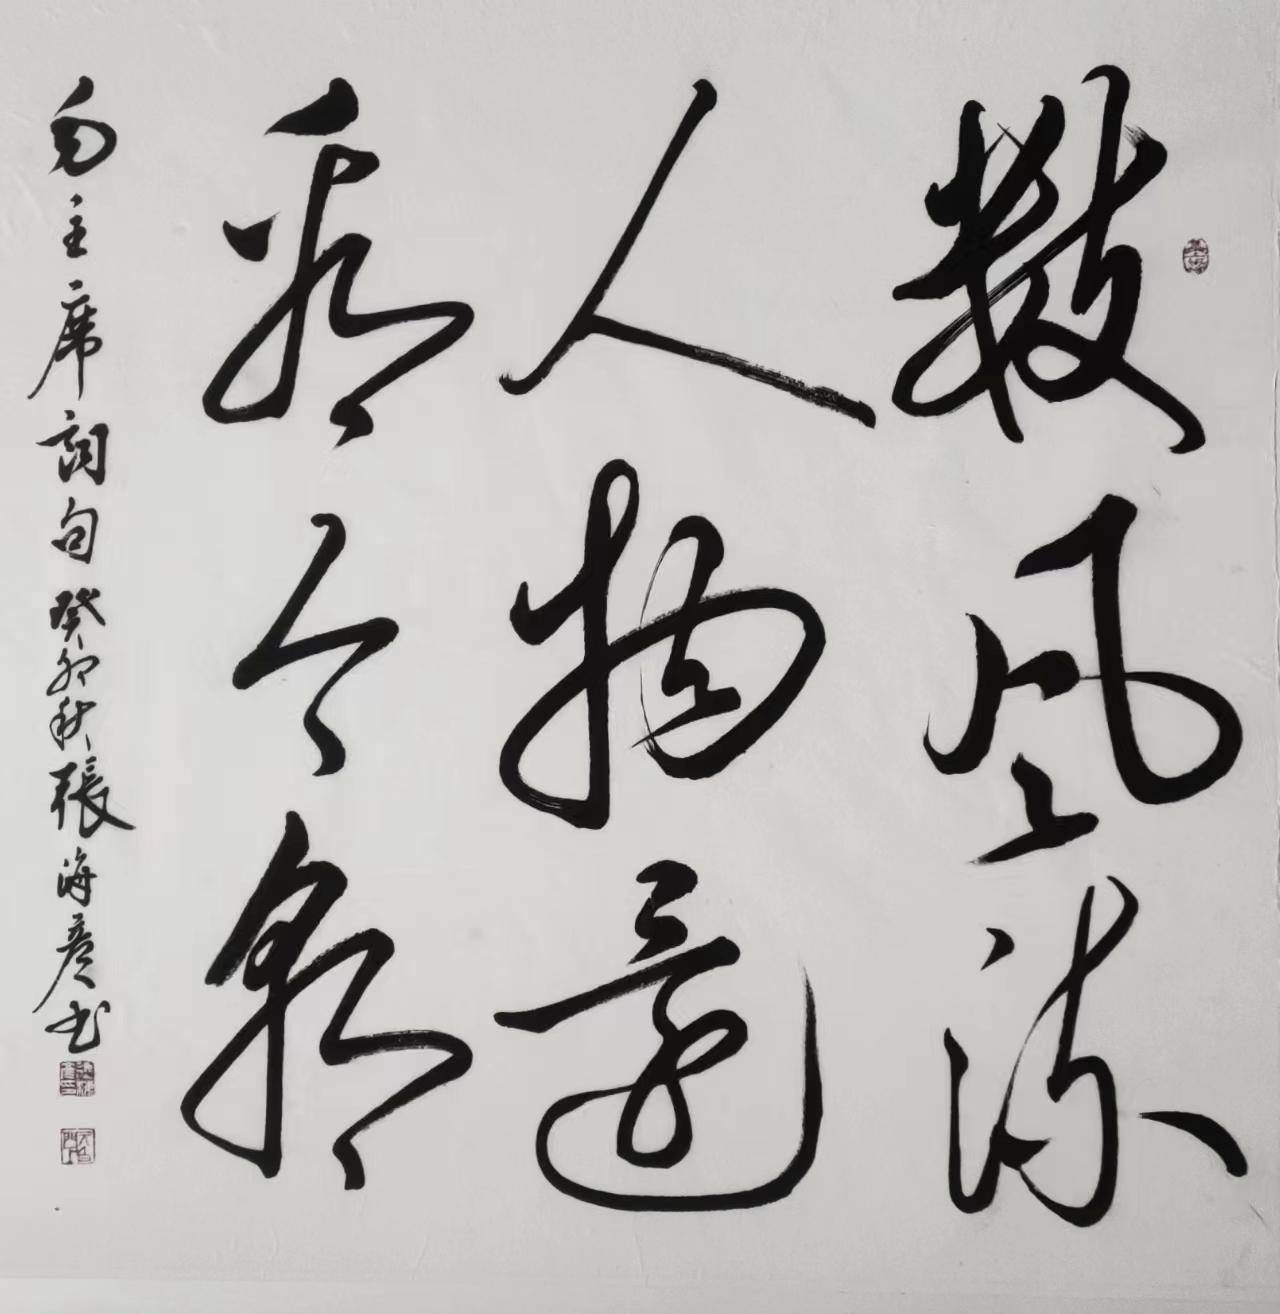 数风流
人物还
看今朝
毛主席词句 癸卯秋 張海彦书